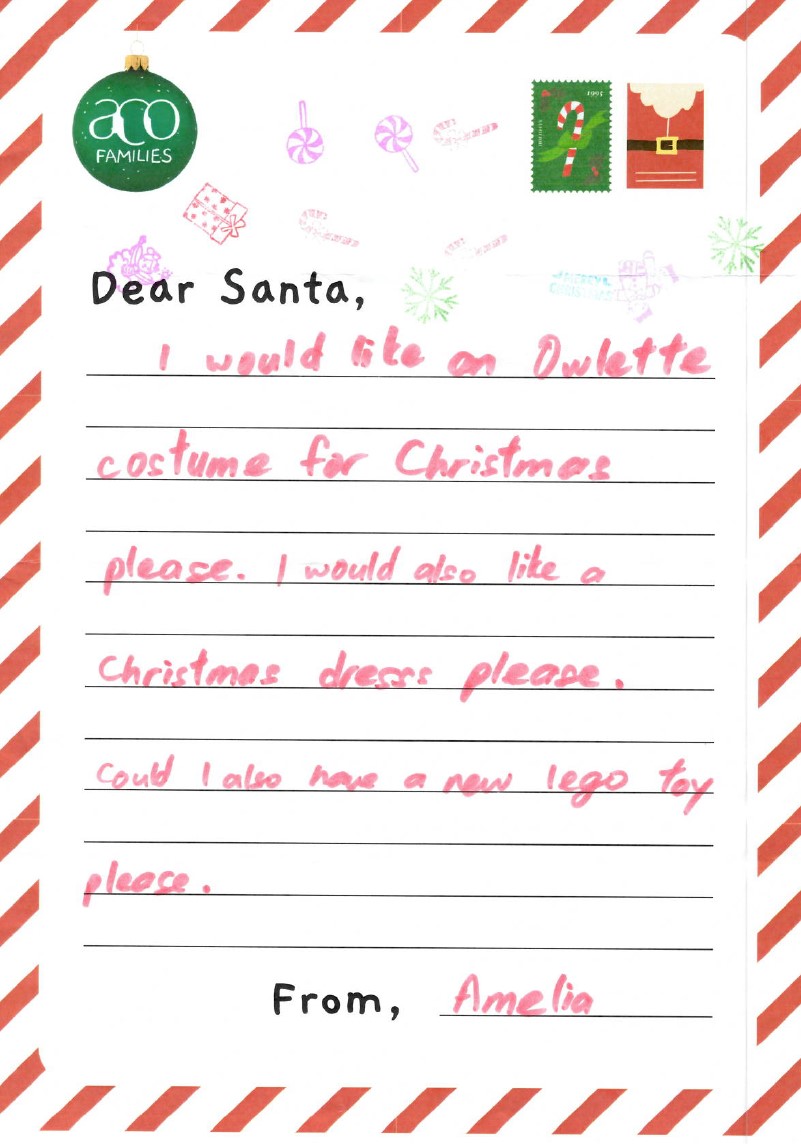 aco
FAMILIES
Dear Santa,
I would like an Owlette
costume for Christmas
please. I would also like a
Christmas dresss please.
Could I also have a new lego toy
please.
From, Amelia